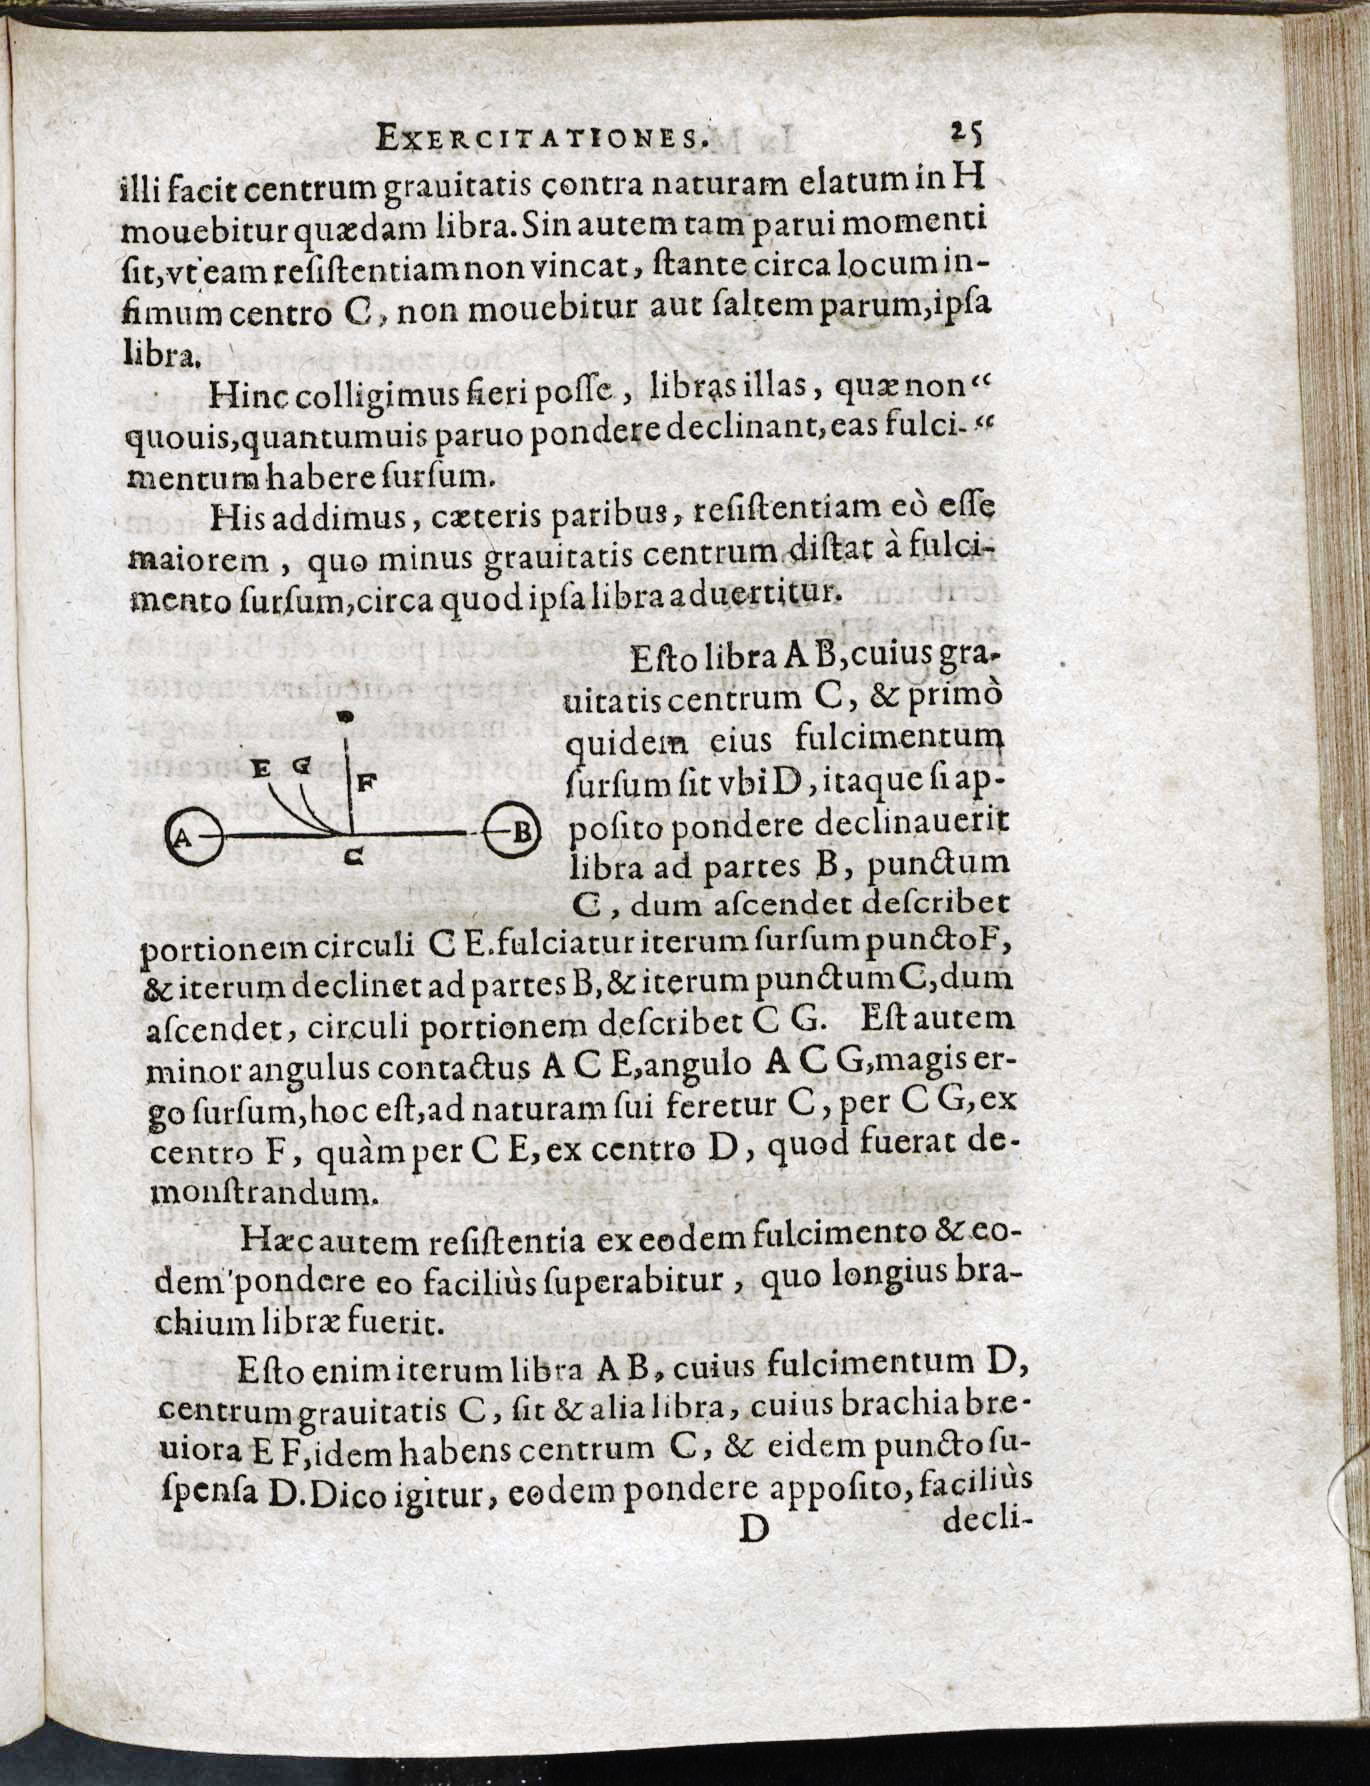 EXERCITATIONES. 25
illi facit centrum grauitatis contra naturam elatum in H
mouebitur quædam libra. Sin autem tam parui momenti
ſit, vt eam reſiſtentiam non vincat, ſtante circa locum in-
fimum centro C, non mouebitur aut ſaltem parum, ipſa
libra.
Hinc colligimus fieri poſſe, libras illas, quæ non “
quouis, quantumuis paruo pondere declinant, eas fulci- “
mentum habere ſurſum.
His addimus, cæteris paribus, reſiſtentiam eò eſſe
maiorem, quo minus grauitatis centrum diſtat à fulci-
mento ſurſum, circa quod ipſa libra aduertitur.
Eſto libra A B, cuius gra-
uitatis centrum C, & primò
quidem eius fulcimentum
ſurſum ſit vbi D, itaque ſi ap-
poſito pondere declinauerit
libra ad partes B, punctum
C, dum aſcendet deſcribet
E G F
A B
C
portionem circuli C E. fulciatur iterum ſurſum puncto F,
& iterum declinet ad partes B, & iterum punctum C, dum
aſcendet, circuli portionem deſcribet C G. Eſt autem
minor angulus contactus A C E, angulo A C G, magis er-
go ſurſum, hoc eſt, ad naturam ſui feretur C, per C G, ex
centro F, quàm per C E, ex centro D, quod fuerat de-
monſtrandum.
Hæc autem reſiſtentia ex eodem fulcimento & eo-
dem pondere eo faciliùs ſuperabitur, quo longius bra-
chium libræ fuerit.
Eſto enim iterum libra A B, cuius fulcimentum D,
centrum grauitatis C, ſit & alia libra, cuius brachia bre-
uiora E F, idem habens centrum C, & eidem puncto ſu-
ſpenſa D. Dico igitur, eodem pondere appoſito, faciliùs
D decli-